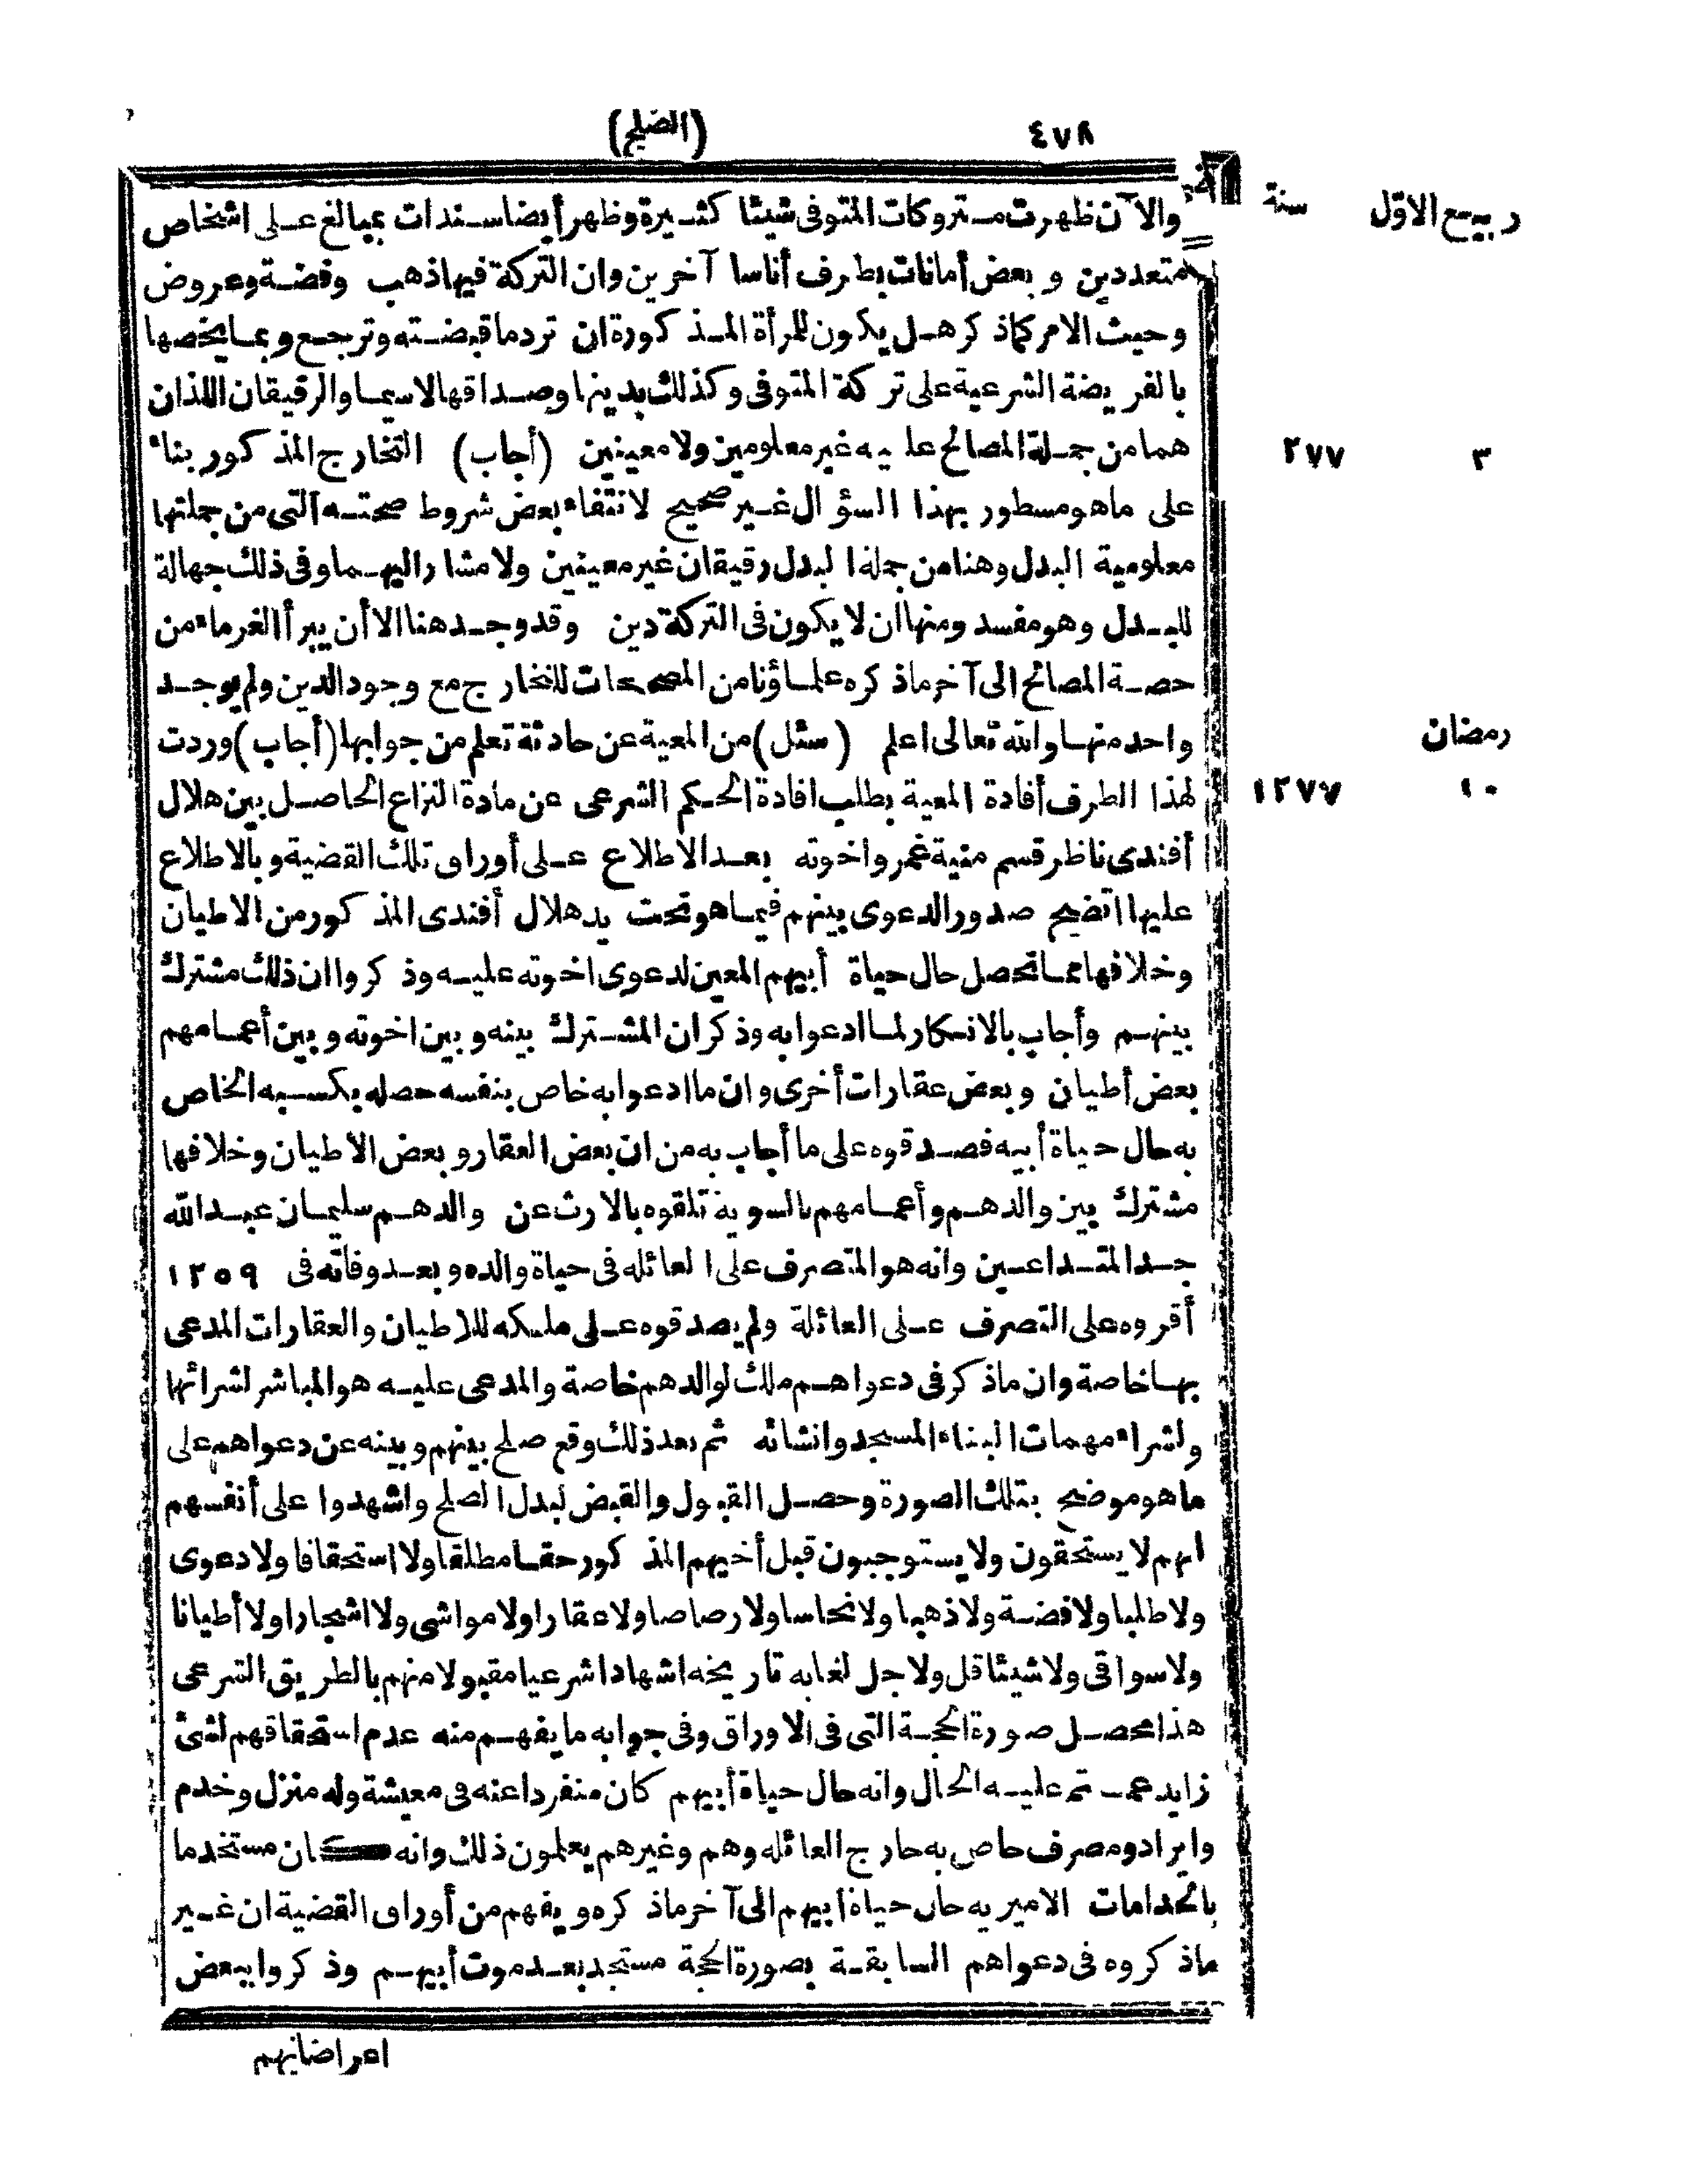 ٤٧٨
(الصلح)
والآن ظهرت متروكات المتوفى شيئا كثيرة وظهر أيضا سندات بمبالغ على اشخاص
ربيع الاوّل سنة
متعددين وبعض أمانات بطرف أناسا آخرين وان التركة فيها ذهب وفضة وعروض
وحيث الامر كماذكر هل يكون للمرأة المذكورة ان ترد ما قبضته وترجع وبما يخصها
بالفريضة الشرعية على تركة المتوفى وكذلك بدينها وصداقها لاسيما والرقيقان اللذان
هما من جملة المصالح عليه غير معلومين ولا معينين (أجاب) التخارج المذكور بناء
٣ ٢٧٧
على ما هو مسطور بهذا السؤال غير صحيح لانتفاء بعض شروط صحته التى من جملتها
معلومية البدل وهنا من جملة البدل رقيقان غير معينين ولا مشارا اليهما وفى ذلك جهالة
للبدل وهو مفسد ومنها ان لا يكون فى التركة دين وقد وجد هنا الا أن يبرأ الغرماء من
حصة المصالح الى آخر ماذكره علماؤنا من المصححات للتخارج مع وجود الدين ولم يوجد
واحد منها والله تعالى اعلم (سئل) من المعية عن حادثة تعلم من جوابها (أجاب) وردت
رمضان
لهذا الطرف أفادة المعية بطلب افادة الحكم الشرعى عن مادة النزاع الحاصل بين هلال
١٠ ١٢٧٧
أفندى ناظر قسم منية غمر واخوته بعد الاطلاع على أوراق تلك القضية وبالاطلاع
عليها اتضح صدور الدعوى بينهم فيما هو تحت يد هلال أفندى المذكور من الاطيان
وخلافها مما تحصل حال حياة أبيهم المعين لدعوى اخوته عليه وذكروا ان ذلك مشترك
بينهم وأجاب بالانكار لما ادعوا به وذكر ان المشترك بينه وبين اخوته وبين أعمامهم
بعض أطيان وبعض عقارات أخرى وان ما ادعوا به خاص بنفسه حصله بكسبه الخاص
به حال حياة أبيه فصدقوه على ما أجاب به من ان بعض العقار وبعض الاطيان وخلافها
مشترك بين والدهم وأعمامهم بالسوية تلقوه بالارث عن والدهم سليمان عبد الله
جد المتداعين وانه هو المتصرف على العائله فى حياة والده وبعد وفاته فى ١٢٥٩
أقروه على التصرف على العائلة ولم يصدقوه على ملكه للاطيان والعقارات المدعى
بها خاصة وان ماذكر فى دعواهم ملك لوالدهم خاصة والمدعى عليه هو المباشر لشرائها
ولشراء مهمات البناء المسجد وانشائه ثم بعد ذلك وقع صلح بينهم وبينه عن دعواهم على
ما هو موضح بتلك الصورة وحصل القبول والقبض لبدل الصلح واشهدوا على أنفسهم
انهم لا يستحقون ولا يستوجبون قبل أخيهم المذكور حقا مطلقا ولا استحقاقا ولا دعوى
ولا طلبا ولا فضة ولا ذهبا ولا نحاسا ولا رصاصا ولا عقارا ولا مواشى ولا اشجارا ولا أطيانا
ولا سواقى ولا شيئا قل ولا جل لغايه تاريخه اشهادا شرعيا مقبولا منهم بالطريق الشرعى
هذا محصل صورة الحجة التى فى الاوراق وفى جوابه ما يفهم منه عدم استحقاقهم لشئ
زايد عمـ تم عليه الحال وانه حال حياة أبيهم كان منفردا عنه فى معيشة وله منزل وخدم
وايراد ومصرف خاص به خارج العائله وهم وغيرهم يعلمون ذلك وانه كان مستخدما
بالخدامات الاميريه حال حياة أبيهم الى آخر ماذكره ويفهم من أوراق القضية ان غير
ماذكروه فى دعواهم السابقة بصورة الحجة مستجد بعد موت أبيهم وذكروا ببعض
اعراضاتهم